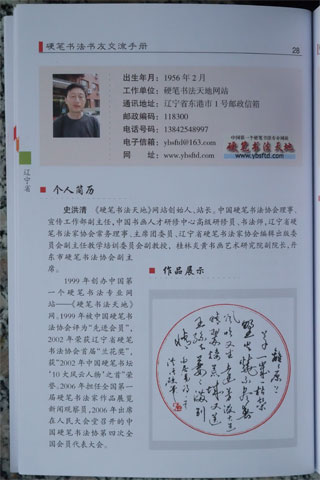 硬笔书法书友交流手册
28
出生年月：1956 年 2 月
工作单位：硬笔书法天地网站
通讯地址：辽宁省东港市 1 号邮政信箱
邮政编码：118300
电话号码：13842548997
电子信箱：ybsftd@163.com
网 址：www.ybsftd.com
中国第一个硬笔书法专业网站
硬笔书法天地
www.ybsftd.com
辽宁省
个人简历
史洪清 《硬笔书法天地》网站创始人、站长，中国硬笔书法协会理事、
宣传工作部副主任，中国书画人才研修中心高级研修员、书法师，辽宁省硬
笔书法家协会常务理事、主席团委员，辽宁省硬笔书法家协会编辑出版委
员会副主任教学培训委员会副教授，桂林天黄书画艺术研究院副院长、丹
东市硬笔书法协会副主
席。
作品展示
1999 年创办中国第
一个硬笔书法专业网
站——《硬笔书法天地》
网，1999 年被中国硬笔书
法协会评为“先进会员”，
2002 年荣获辽宁省硬笔
书法协会首届“兰花奖”，
获“2002 年中国硬笔书坛
‘10 大风云人物’之首”荣
誉。2006 年担任全国第一
届硬笔书法家作品展览
新闻观察员，2006 年出席
在人民大会堂召开的中
国硬笔书法协第四次全
国会员代表大会。